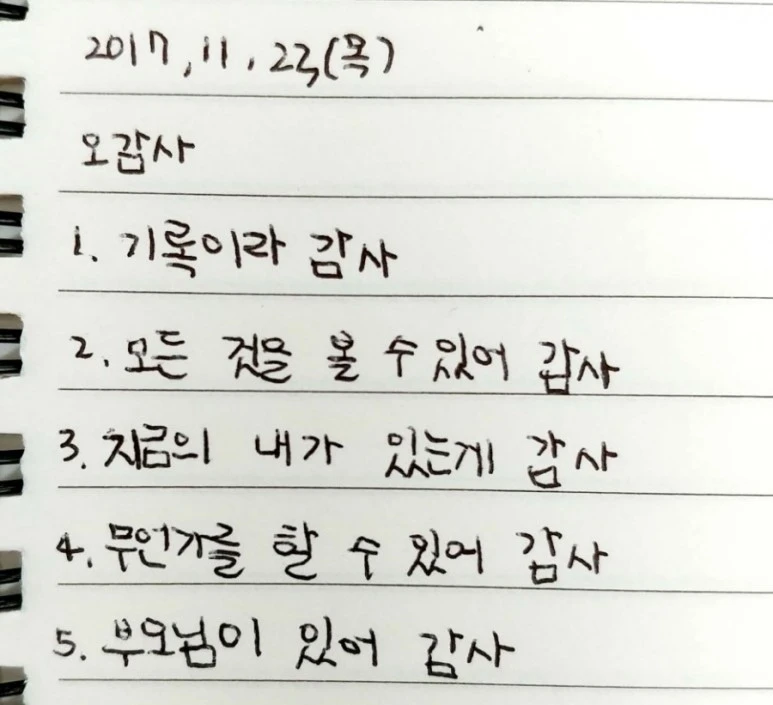 2017, 11, 23,(목)
오감사
1. 기록이라 감사
2. 모든 것을 볼 수 있어 감사
3. 지금의 내가 있는게 감사
4. 무언가를 할 수 있어 감사
5. 부모님이 있어 감사